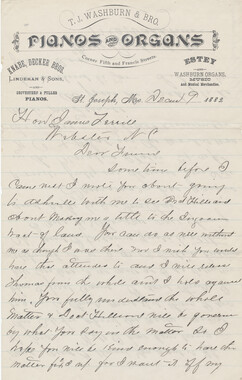 T. J. WASHBURN & BRO.
PIANOS AND ORGANS
Corner Fifth and Francis Streets.
KNABE, DECKER BROS.
LINDEMAN & SONS,
GROVESTEEN & FULLER
PIANOS.
ESTEY
WASHBURN ORGANS,
MUSIC
and Musical Merchandise.
St Joseph, Mo 9 1882
Hon James Terrell
Webster N C
Dear James
Some time before I
Came west I wrote you about going
to Ashville with me to See
about Making me a title to the
tract of land. You can do as well without
me as though I was there, and I wish you would
have this attended to and I will
Thomas from the whole and I hold against
him. You fully understand the whole
Matter & will be governed
by what you Say in the Matter. So I
hope you will be kind enough to have the
matter fixed up for I want it off my